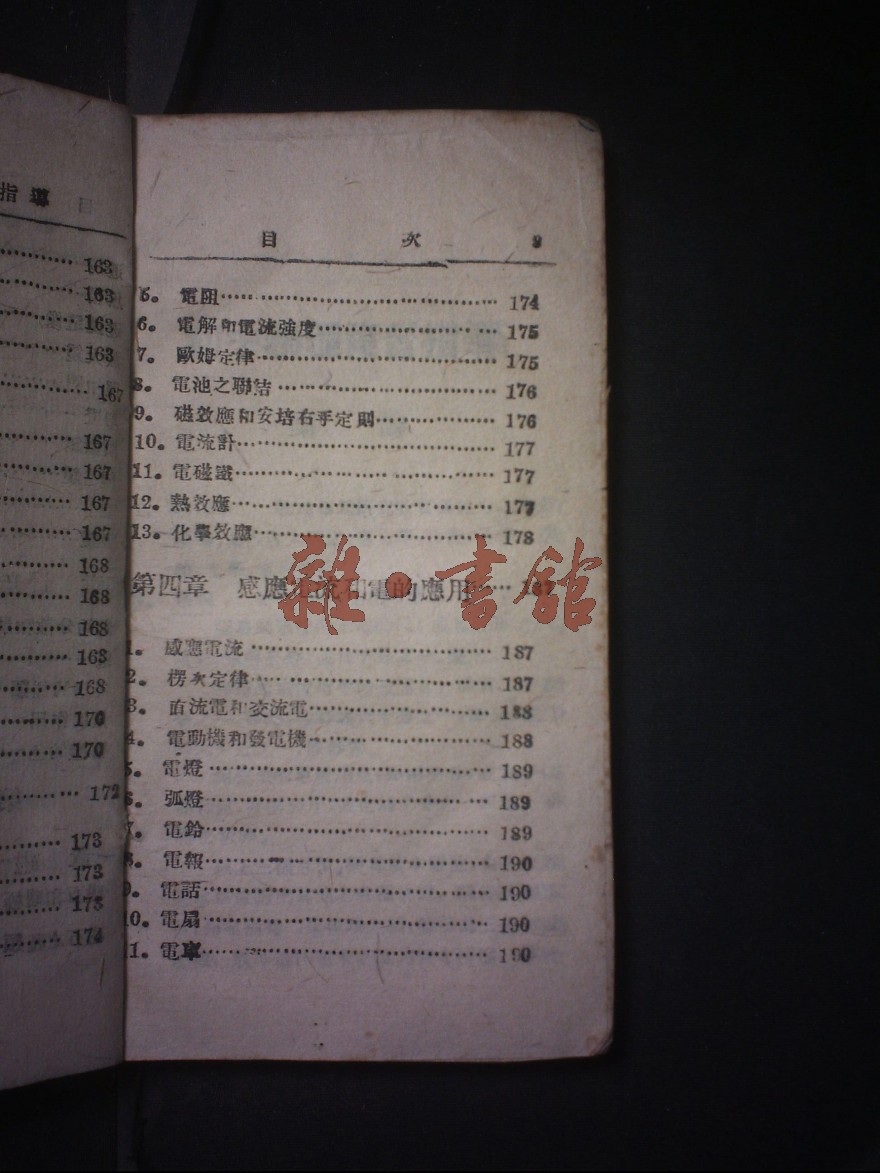 指導 目
163
163
163
163
167
167
167
167
167
168
168
168
168
168
170
170
172
173
173
173
174
目次 9
5。 電阻 174
6。 電解和電流強度 175
7。 歐姆定律 175
8。 電池之聯結 176
9。 磁效應和安培右手定則 176
10。 電流計 177
11。 電磁鐵 177
12。 熱效應 177
13。 化學效應 178
第四章 感應電流和電的應用 187
1。 感應電流 187
2。 楞次定律 187
3。 直流電和交流電 188
4。 電動機和發電機 188
5。 電燈 189
6。 弧燈 189
7。 電鈴 189
8。 電報 190
9。 電話 190
10。 電扇 190
11。 電車 190
雜·書館